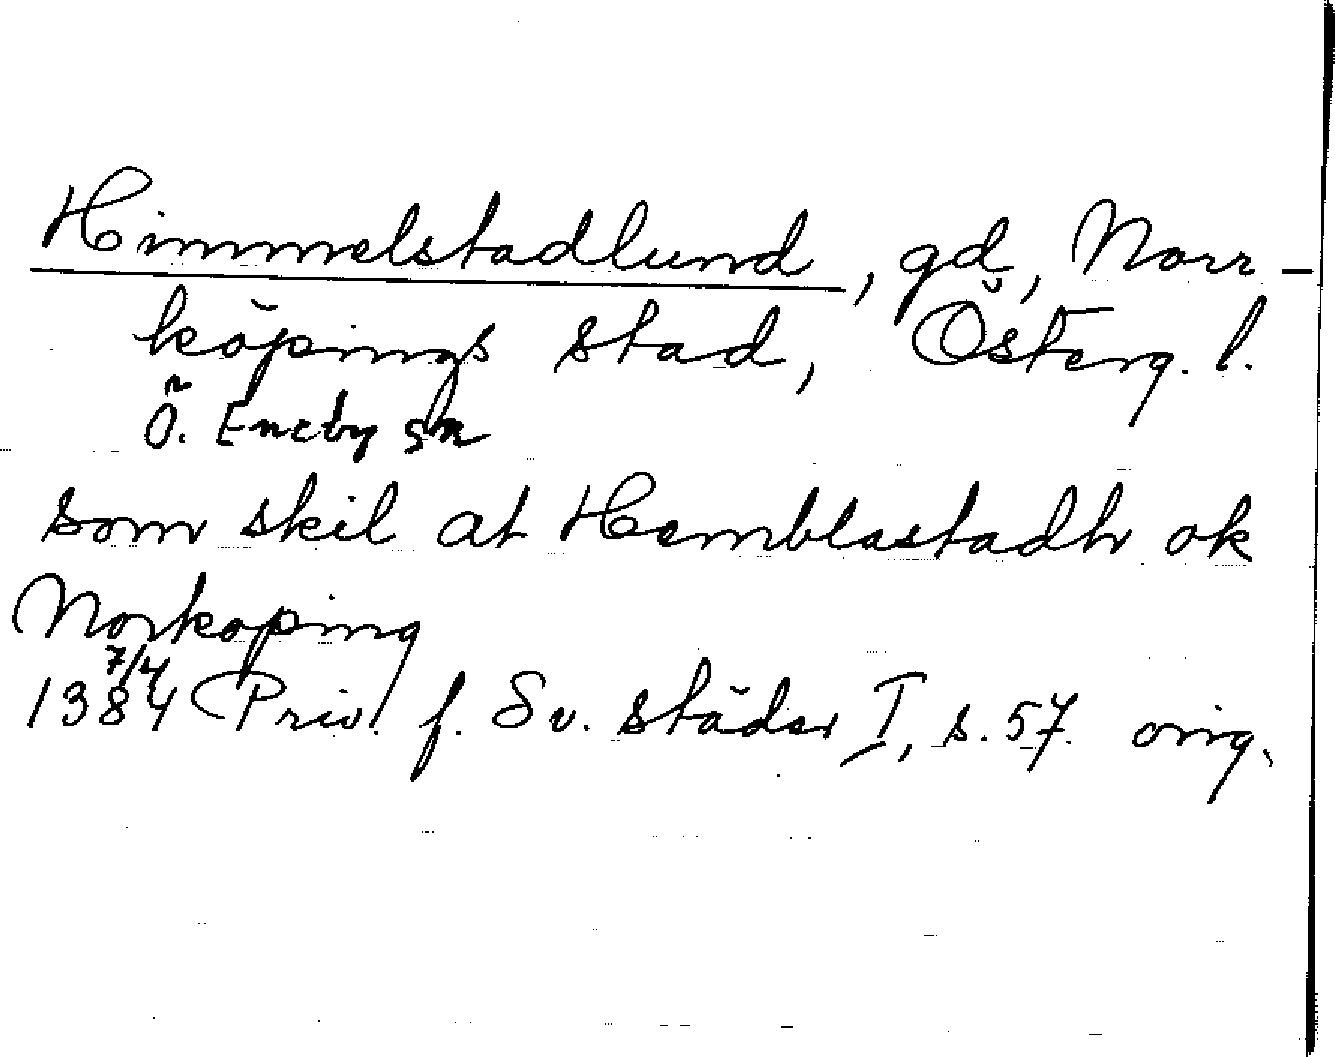 Himmelstadlund, gd, Norr-
köpings stad, Österg. l.
Ö. Eneby sn
som skil at Hemblastadh ok
Norkoping
1384 7/4 Priv. f. Sv. städer I, s. 57. orig.